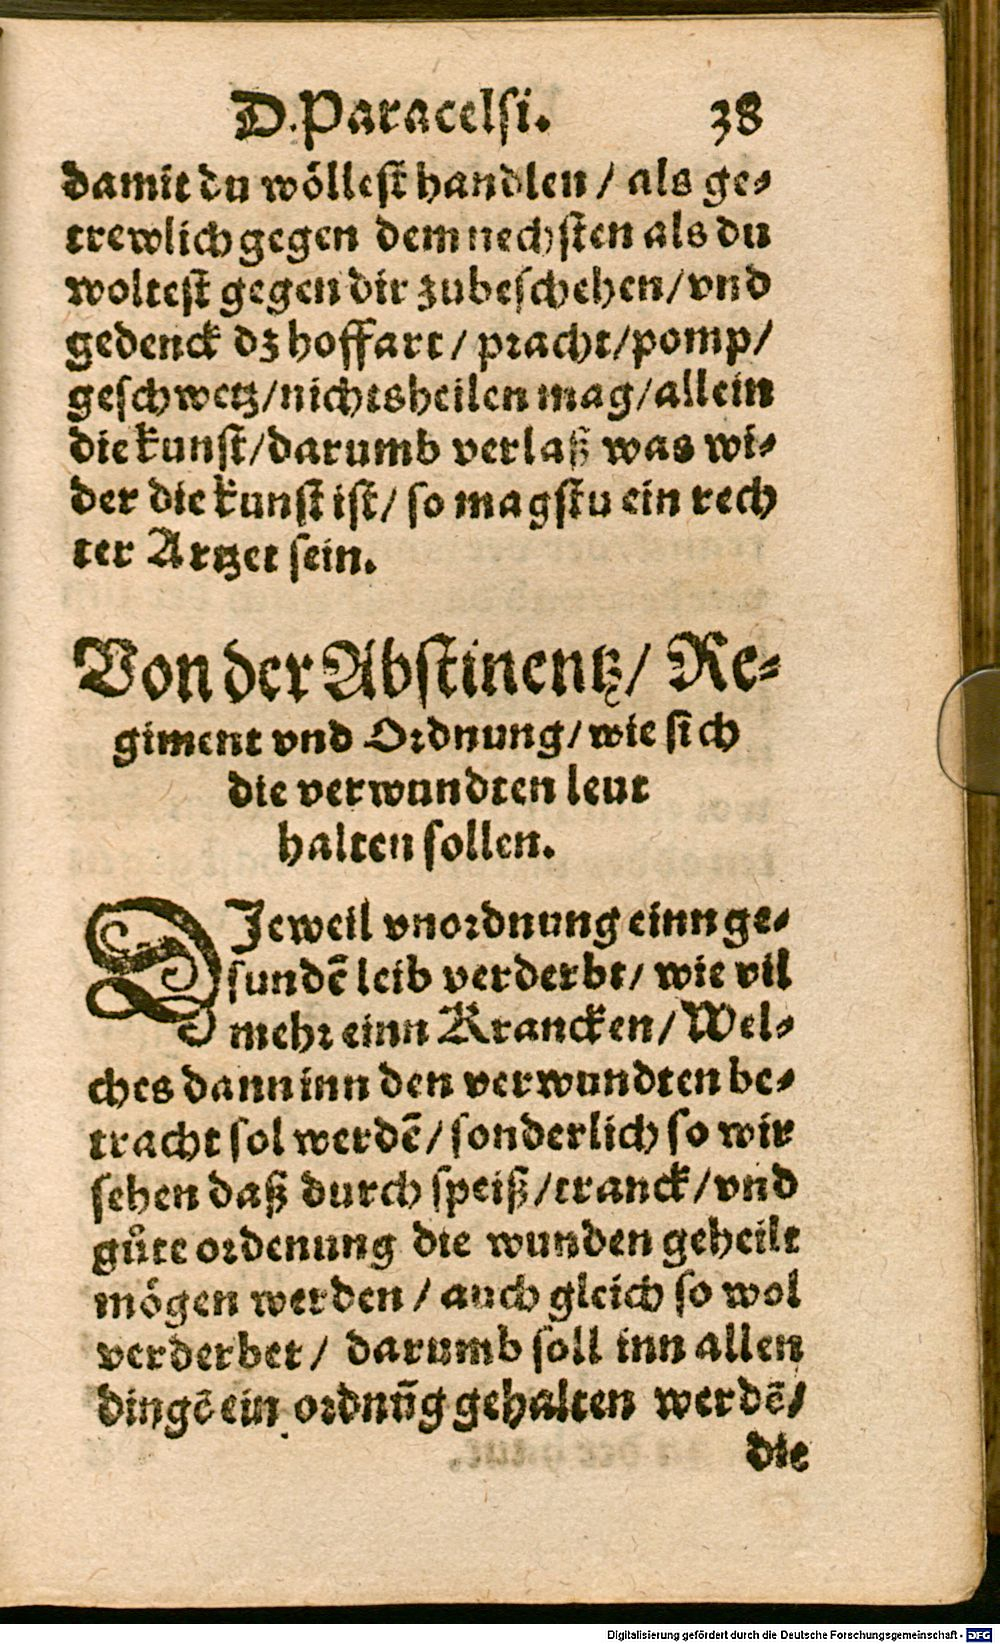 D. Paracelsi. 38
damit du wöllest handlen / als ge-
trewlich gegen dem nechsten als du
woltest gegen dir zubeschehen / vnd
gedenck dz hoffart / pracht / pomp /
geschwetz / nichts heilen mag / allein
die kunst / darumb verlaß was wi-
der die kunst ist / so magstu ein rech
ter Artzet sein.
Von der Abstinentz / Re-
giment vnd Ordnung / wie sich
die verwundten leut
halten sollen.
DJeweil vnordnung einn ge-
sundē leib verderbt / wie vil
mehr einn Krancken / Wel-
ches dann inn den verwundten be-
tracht sol werdē / sonderlich so wir
sehen daß durch speiß / tranck / vnd
gůte ordenung die wunden geheilt
mögen werden / auch gleich so wol
verderbet / darumb soll inn allen
dingē ein ordnūg gehalten werdē /
die
Digitalisierung gefördert durch die Deutsche Forschungsgemeinschaft - DFG